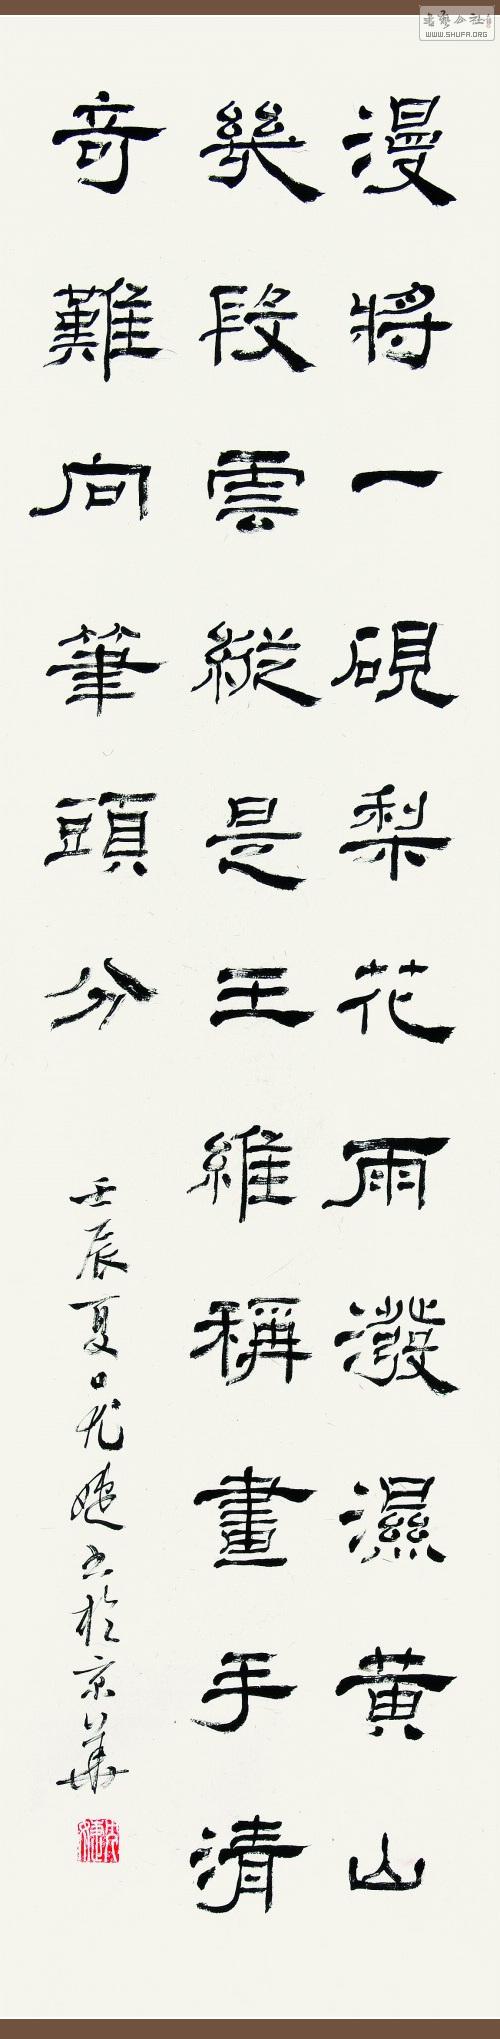 漫將一硯梨花雨潑濕黃山
幾段雲縱是王維稱畫手清
奇難向筆頭分
壬辰夏日尤婕書於京華
書藝公社
WWW.SHUFA.ORG